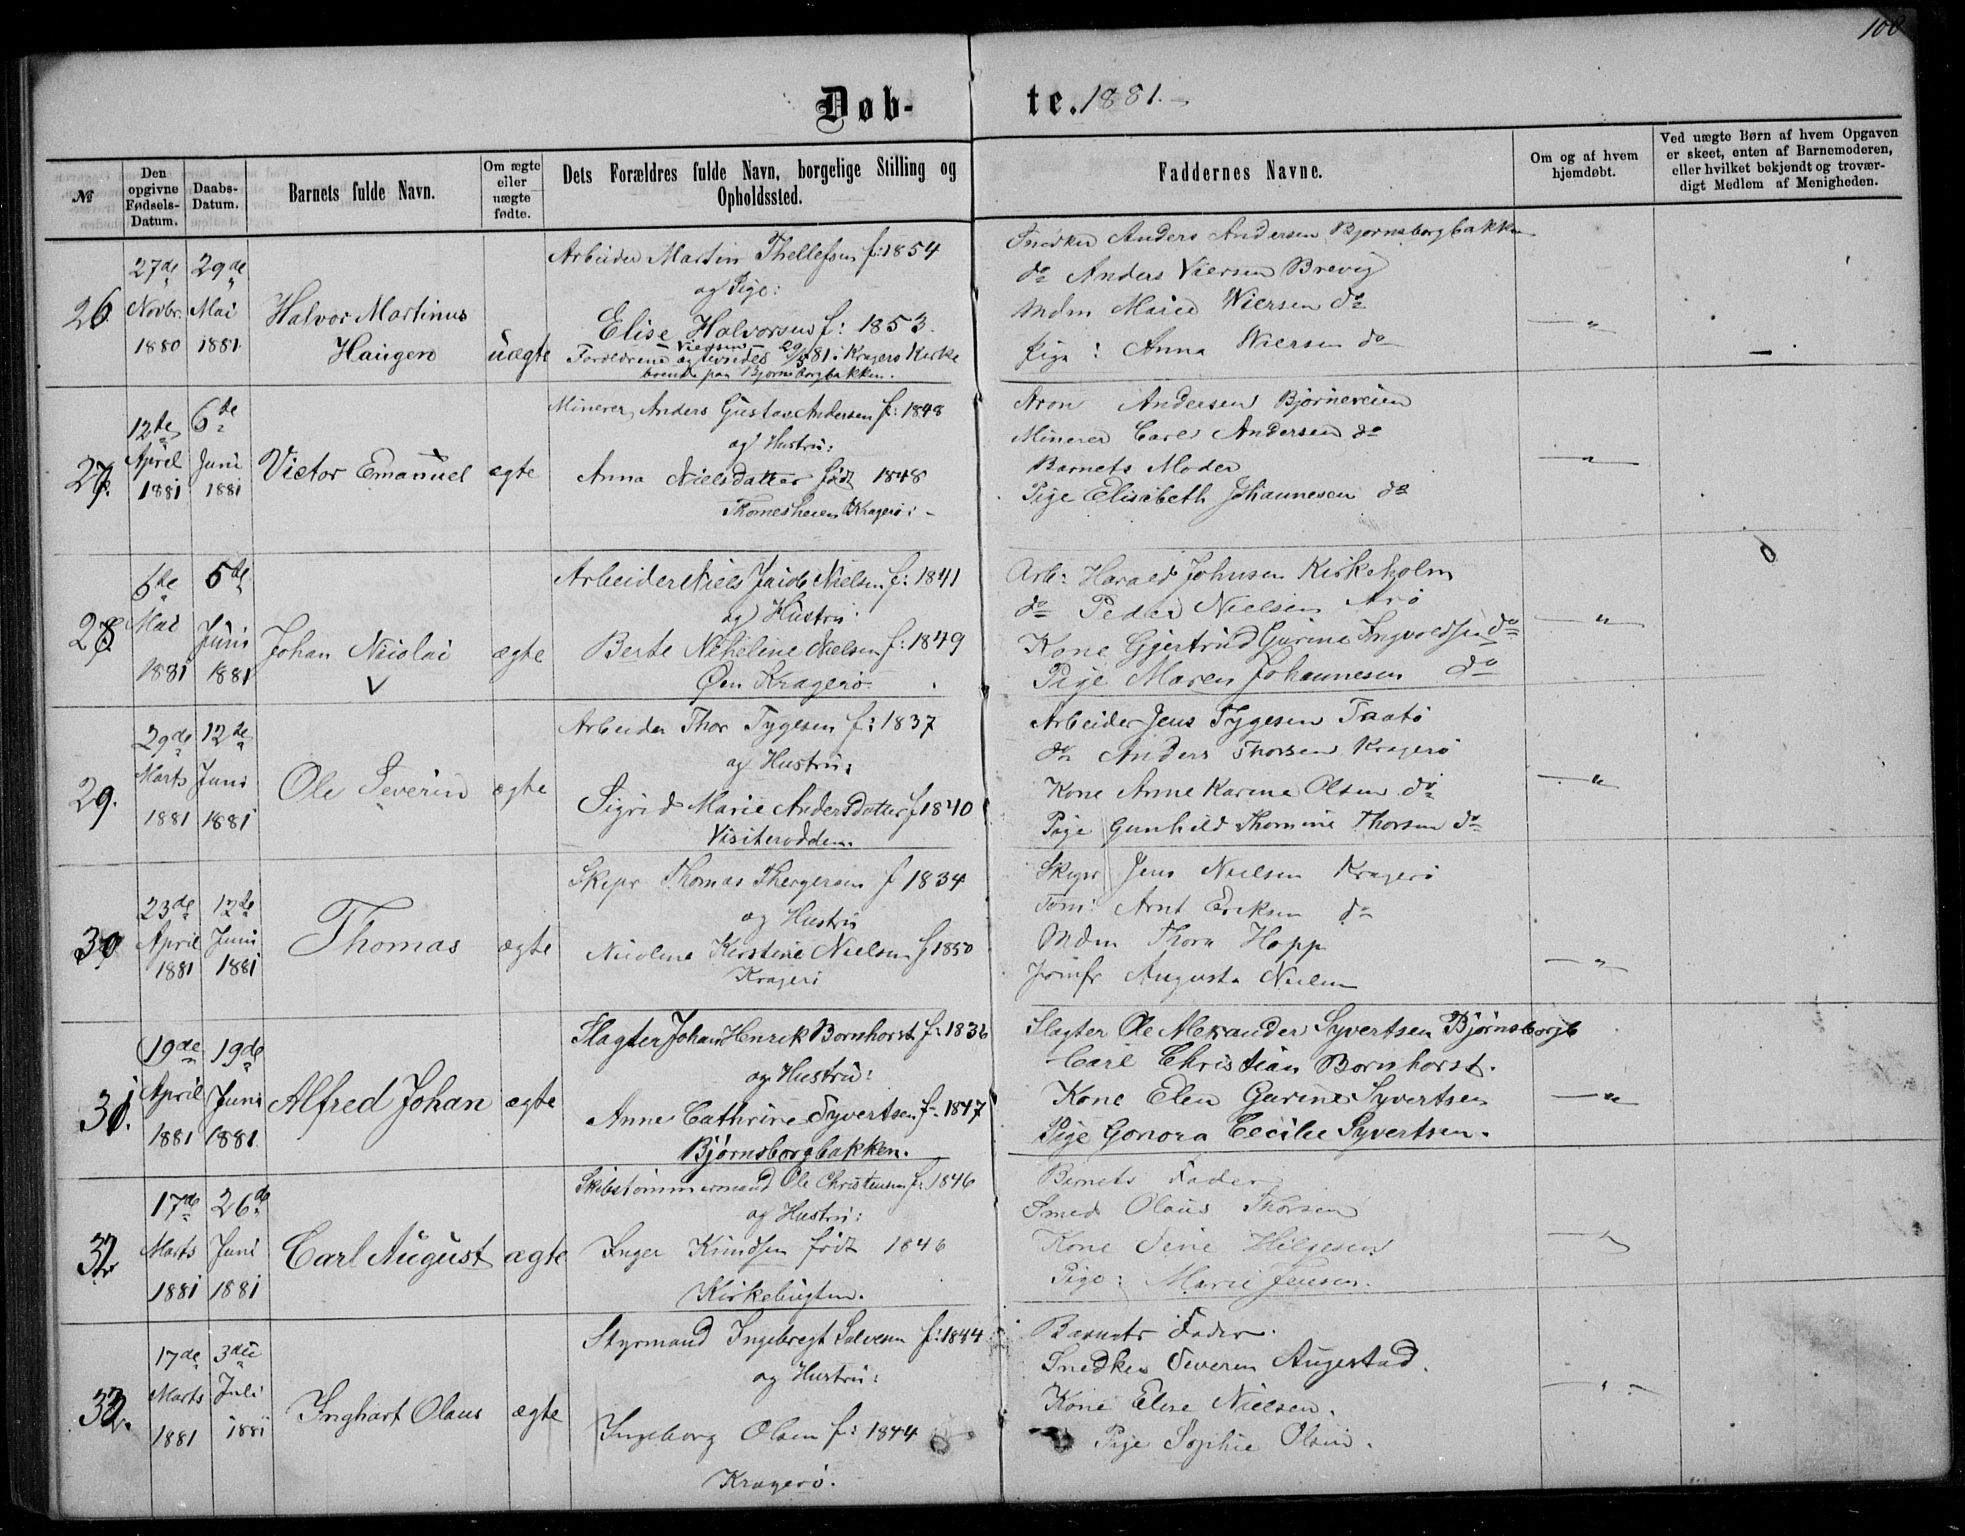 108
Døb-te. 1881.
№
Den opgivne Fødsels-Datum.
Daabs-Datum.
Barnets fulde Navn.
Om ægte eller uægte fødte.
Dets Forældres fulde Navn, borgelige Stilling og Opholdssted.
Faddernes Navne.
Om og af hvem hjemdøbt.
Ved uægte Børn af hvem Opgaven er skeet, enten af Barnemoderen, eller hvilket bekjendt og troværdigt Medlem af Menigheden.
26.
27de Novbr. 1880
29de Mai 1881
Halvor Martinus
Haugen
uægte
Arbeider Martin Thellefsen f: 1854
og Pige:
Elise Halvorsen f: 1853.
Viersen
Forældrene ægteviedes 29/5 81 i Kragerø Kirke
boende paa Bjørnsborgbakken.
Snedker Anders Andersen Bjornsborgbakken
do Anders Viersen Brevig
Mdm Maried Wiersen do
Pige: Anna Wiersen do
27.
12te April 1881
6te Juni 1881
Victor Emanuel
ægte
Minerer Anders Gustav Andersen f: 1848
og Hustru:
Anna Nielsdatter født 1848
Thomesheien Kragerø:
Aron Andersen Bjørneveien
Minerer Carl Andersen do
Barnets Moder
Pige Elisabeth Johannesen do
28.
6te Mai 1881
5te Juni 1881
Johan Nicolai
ægte
Arbeider Niels Jacob Nielsen f: 1841
og Hustru
Berte Nicheline Nielsen f: 1849
Øen Kragerø.
Arb: Harald Johnsen Kirkeholm
do Peder Nielsen Arø
Kone Gjertrud Gurine Ingvoldsen do
Pige Maren Johannesen do
29.
29de Marts 1881
12te Juni 1881
Ole Severin
ægte
Arbeider Thor Tygesen f: 1837
og Hustru:
Sigrid Marie Andersdatter f 1840
Visiterodden.
Arbeider Jens Tygesen Taatø
do Anders Thorsen Kragerø
Kone Anne Karine Olsen do
Pige Gunhild Thomine Thorsen do
30
23de April 1881
12te Juni 1881
Thomas
ægte
Skipr Thomas Thergersen f 1834
og Hustru
Nicoline Kirstine Nielsen f 1850
Kragerø
Skipr Jens Nielsen Kragerø
Tøm: Arnt Eriksen do
Mdm Thora Hopp
Jomfr Augusta Nielsen
31.
19de April 1881
19de Juni 1881
Alfred Johan
ægte
Slagter Johan Henrik Bornhorst f: 1836
og Hustru:
Anne Cathrine Syvertsen f. 1847
Bjørnsborgbakken.
Slagter Ole Alexander Syvertsen Bjørnsborgb
Carl Christian Bornhorst.
Kone Elen Gurine Syvertsen
Pige Gonora Cecilie Syvertsen.
32
17de Marts 1881
26de Juni 1881
Carl August
ægte
Skibstømmermand Ole Christensen f: 1846
og Hustru:
Inger Knudsen født 1846
Kirkebugten.
Barnets Fader
Smed Olaus Thorsen
Kone Sine Helgesen
Pige: Marie Jensen.
33.
17de Marts 1881
3die Juli 1881
Inghart Olaus
ægte
Styrmand Ingebregt Salvesen f: 1844
og Hustru:
Ingeborg Olsen f: 1844
Kragerø.
Barnets Fader.
Snedker Severin Augestad.
Kone Elise Nielsen.
Pige Sophie Olsen.